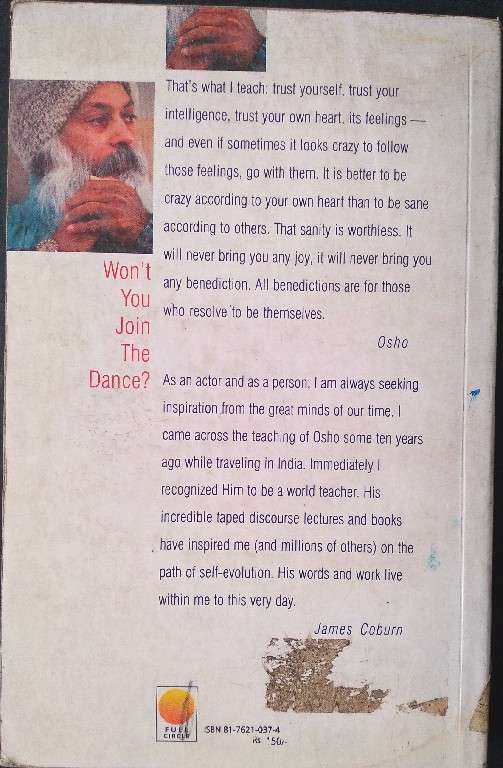 That's what I teach: trust yourself, trust your
intelligence, trust your own heart, its feelings —
and even if sometimes it looks crazy to follow
those feelings, go with them. It is better to be
crazy according to your own heart than to be sane
according to others. That sanity is worthless. It
will never bring you any joy, it will never bring you
any benediction. All benedictions are for those
who resolve to be themselves.
Osho
Won't
You
Join
The
Dance?
As an actor and as a person, I am always seeking
inspiration from the great minds of our time. I
came across the teaching of Osho some ten years
ago while traveling in India. Immediately I
recognized Him to be a world teacher. His
incredible taped discourse lectures and books
have inspired me (and millions of others) on the
path of self-evolution. His words and work live
within me to this very day.
James Coburn
FULL
CIRCLE
ISBN 81-7621-037-4
Rs. 150/-